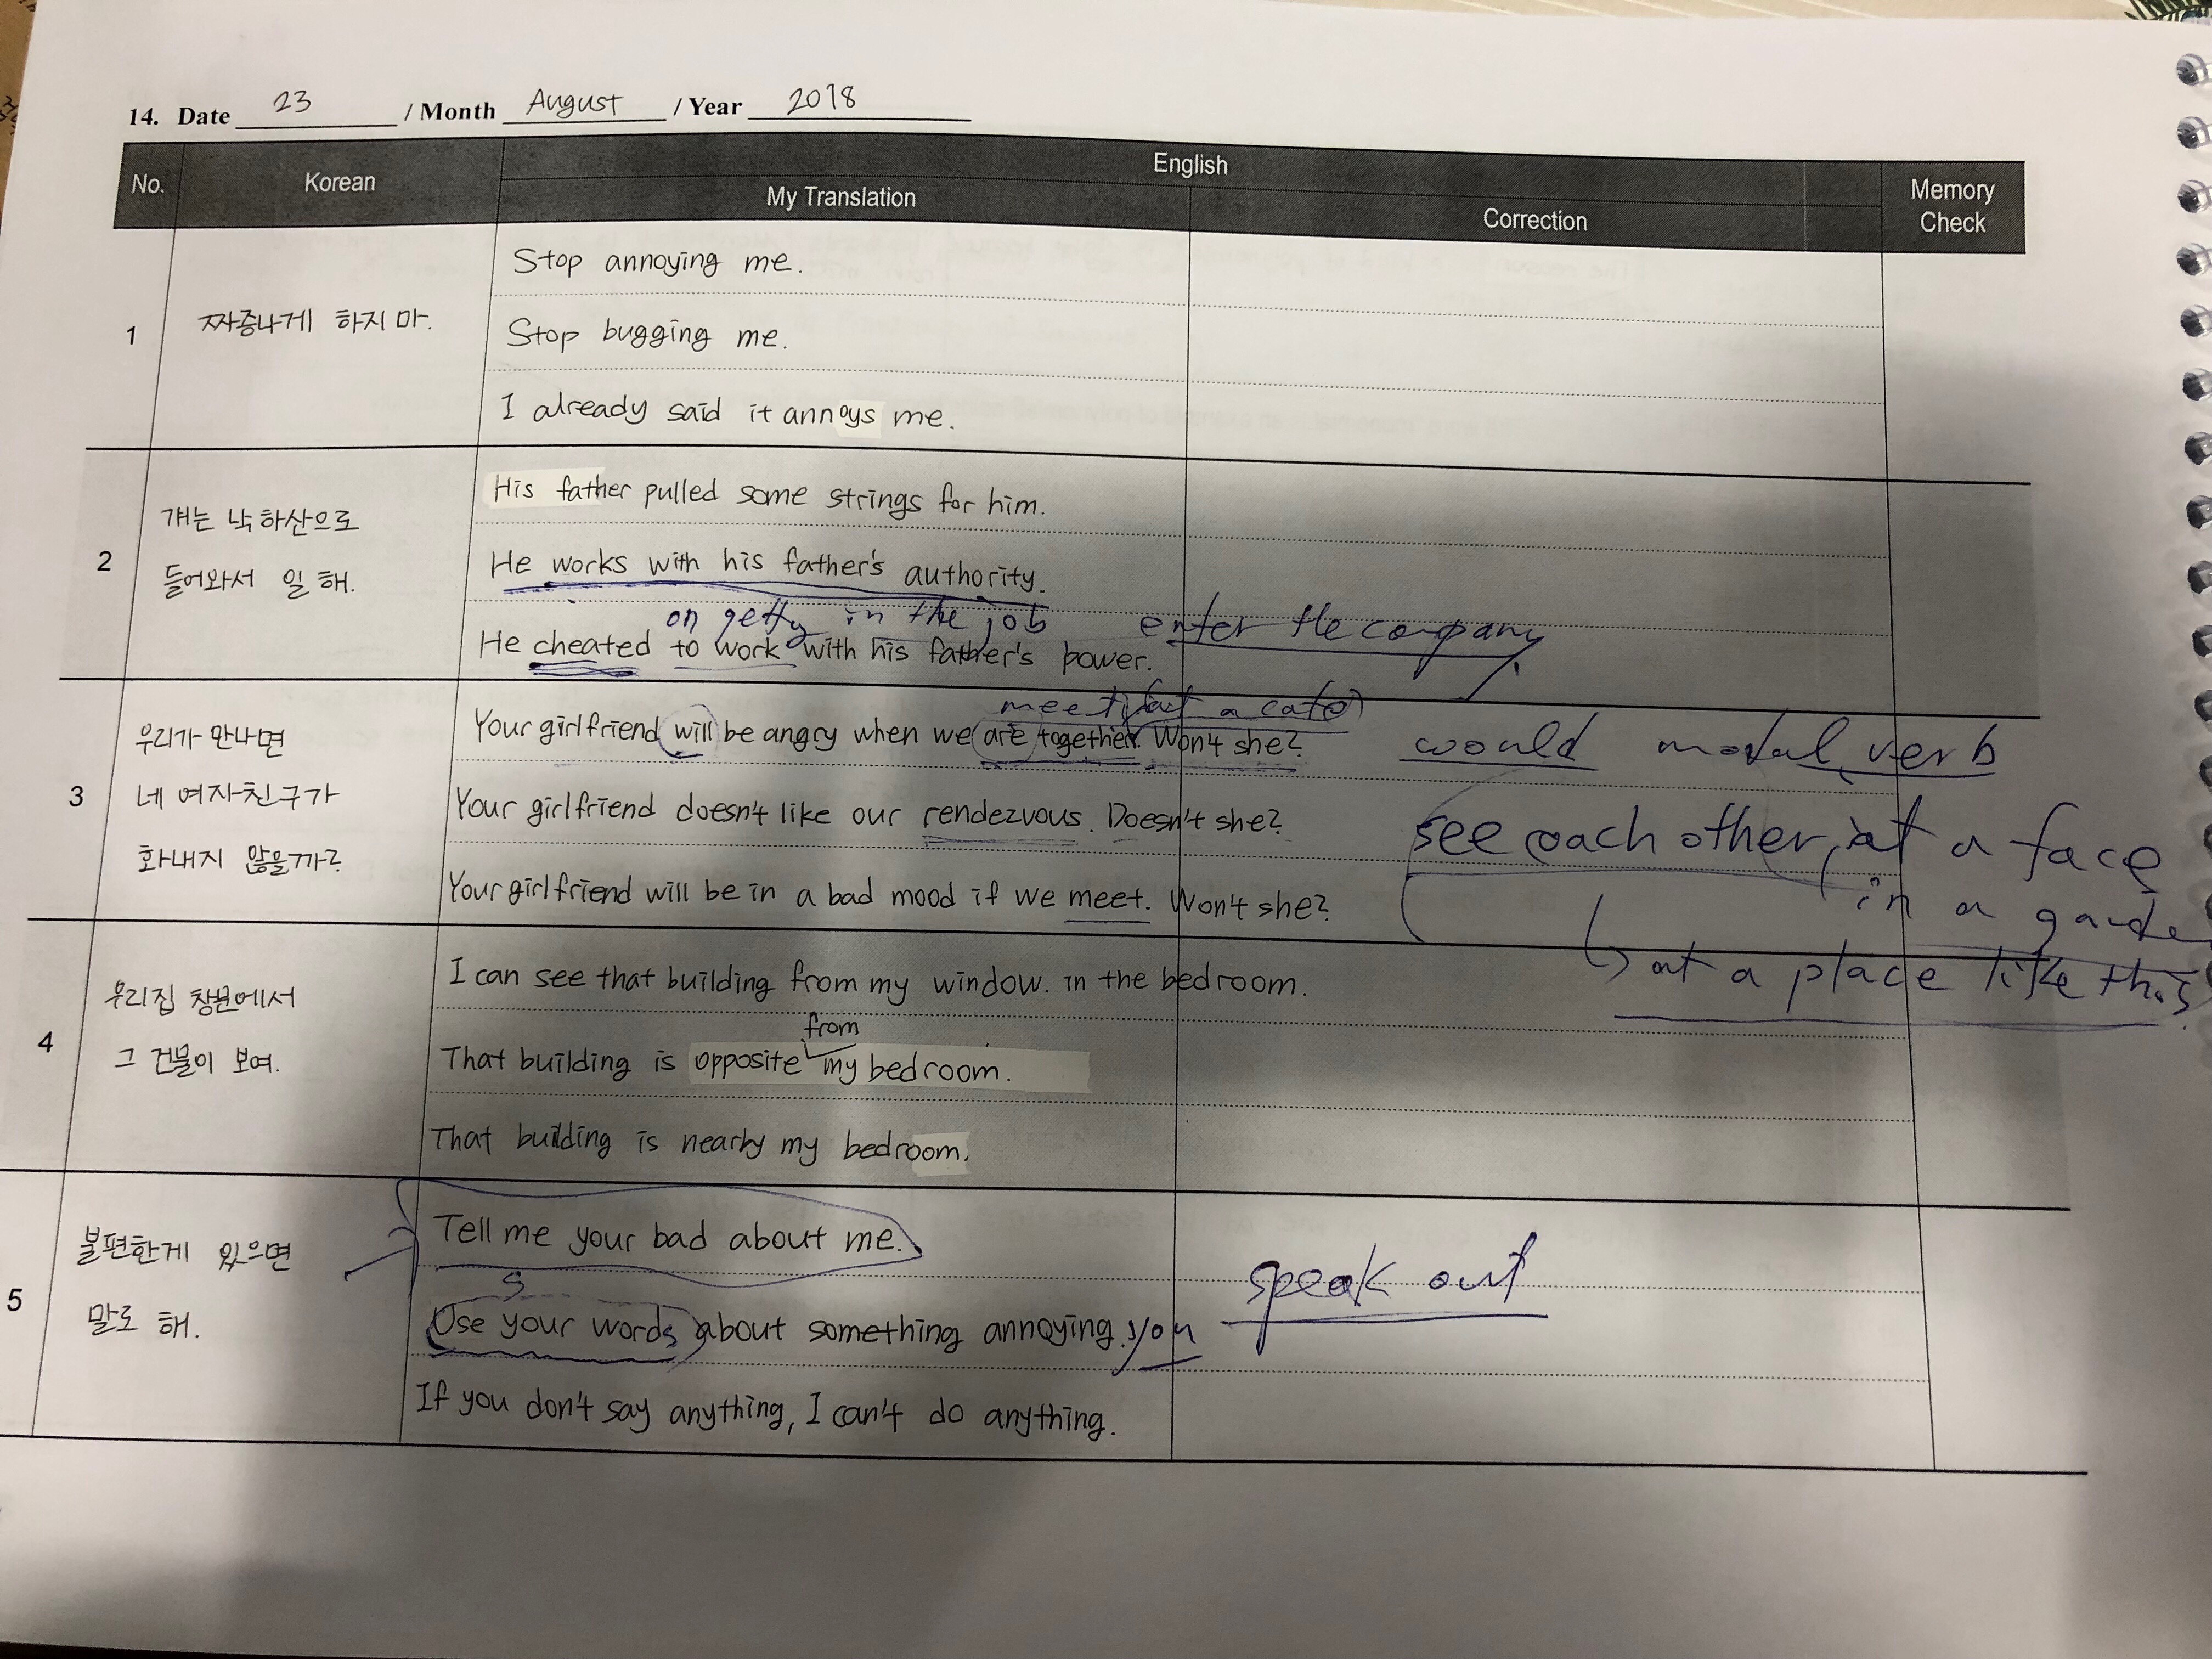 14. Date 23 / Month August / Year 2018
No. Korean English Memory Check
My Translation Correction
1 짜증나게 하지 마.
Stop annoying me.
Stop bugging me.
I already said it annoys me.
2 걔는 낙하산으로
들어와서 일 해.
His father pulled some strings for him.
He works with his father's authority.
on getty in the job enter the company
He cheated to work with his father's power.
3 우리가 만나면
네 여자친구가
화내지 않을까?
meet at a cafe
Your girlfriend will be angry when we are together. Won't she?
would modal verb
Your girlfriend doesn't like our rendezvous. Doesn't she?
see each other, at a face
in a garde
Your girlfriend will be in a bad mood if we meet. Won't she?
at a place like this
4 우리집 창문에서
그 건물이 보여.
I can see that building from my window. in the bedroom.
from
That building is opposite my bedroom.
That building is nearby my bedroom.
5 불편한게 있으면
말로 해.
Tell me your bad about me.
S
Use your words about something annoying. you
speak out
If you don't say anything, I can't do anything.